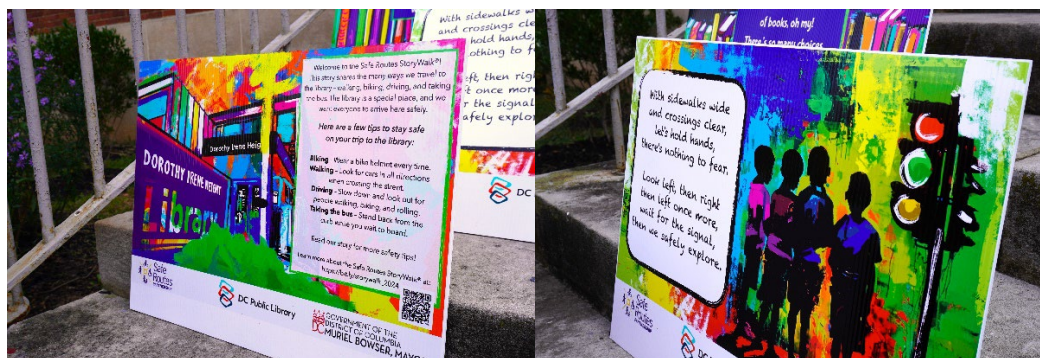 Welcome to the Safe Routes StoryWalk®!
This story shares the many ways we travel to
the library - walking, biking, driving, and taking
the bus. The library is a special place, and we
want everyone to arrive here safely.
Here are a few tips to stay safe
on your trip to the library:
Biking - Wear a bike helmet every time.
Walking - Look for cars in all directions
when crossing the street.
Driving - Slow down and look out for
people walking, biking, and rolling.
Taking the bus - Stand back from the
curb while you wait to board.
Read our story for more safety tips!
Learn more about the Safe Routes StoryWalk® at:
DOROTHY IRENE HEIGHT
Library
Dorothy Irene Heig
Safe
Routes
DC Public Library
GOVERNMENT OF THE
DISTRICT OF COLUMBIA
DC MURIEL BOWSER, MAYO
with sidewalks w
and crossings cle
hold hands,
othing to f
eft, then righ
t once more
r the signal,
afely explor
DC
of books, oh my!
There's so many choices
With sidewalks wide
and crossings clear,
let's hold hands,
there's nothing to fear.
Look left, then right
then left once more,
wait for the signal,
then we safely explore.
Safe
Routes
DC P